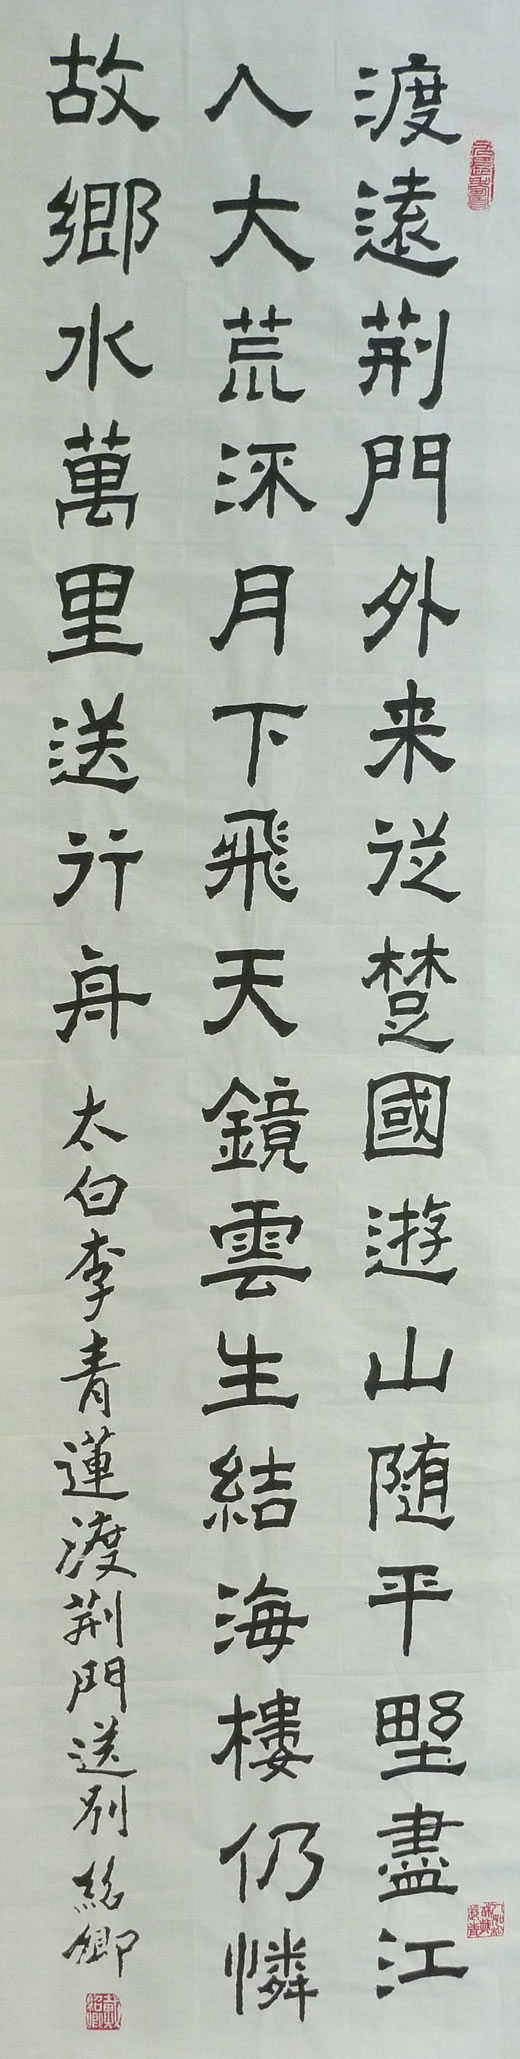 渡遠荆門外来従楚國遊山随平野盡江
入大荒流月下飛天鏡雲生結海樓仍憐
故鄉水萬里送行舟 太白李青蓮渡荆門送別 紹卿